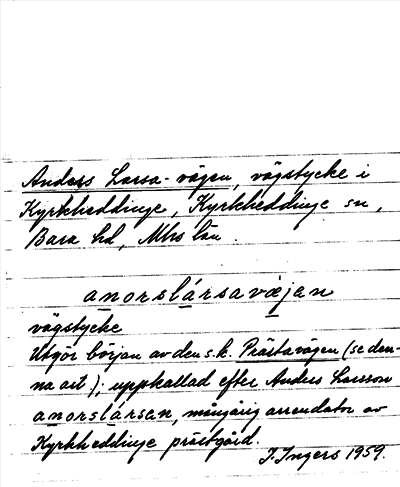 Anders Larsa-vägen, vägstycke i
Kyrkheddinge, Kyrkheddinge sn,
Bara hd, Mhs län.
anorslársavæjan
vägstycke
Utgör början av den s.k. Prästavägen (se den-
na art.); uppkallad efter Anders Larsson
anorslársen, mångårig arrendator av
Kyrkheddinge prästgård.
I. Ingers 1959.